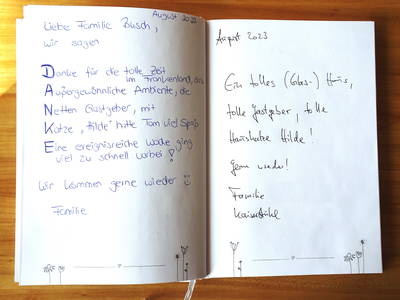 August 2022
Liebe Familie Busch,
wir sagen
Danke für die tolle Zeit
im Frankenland, das
Außergewöhnliche Ambiente, die
Netten Gastgeber, mit
Katze "Hilde" hatte Tom viel Spaß
Eine ereignisreiche Woche ging
viel zu schnell vorbei!
Wir kommen gerne wieder
Familie
August 2023
Ein tolles (Glas-) Haus,
tolle Gastgeber, tolle
Hauskatze Hilde!
Gern wieder!
Familie